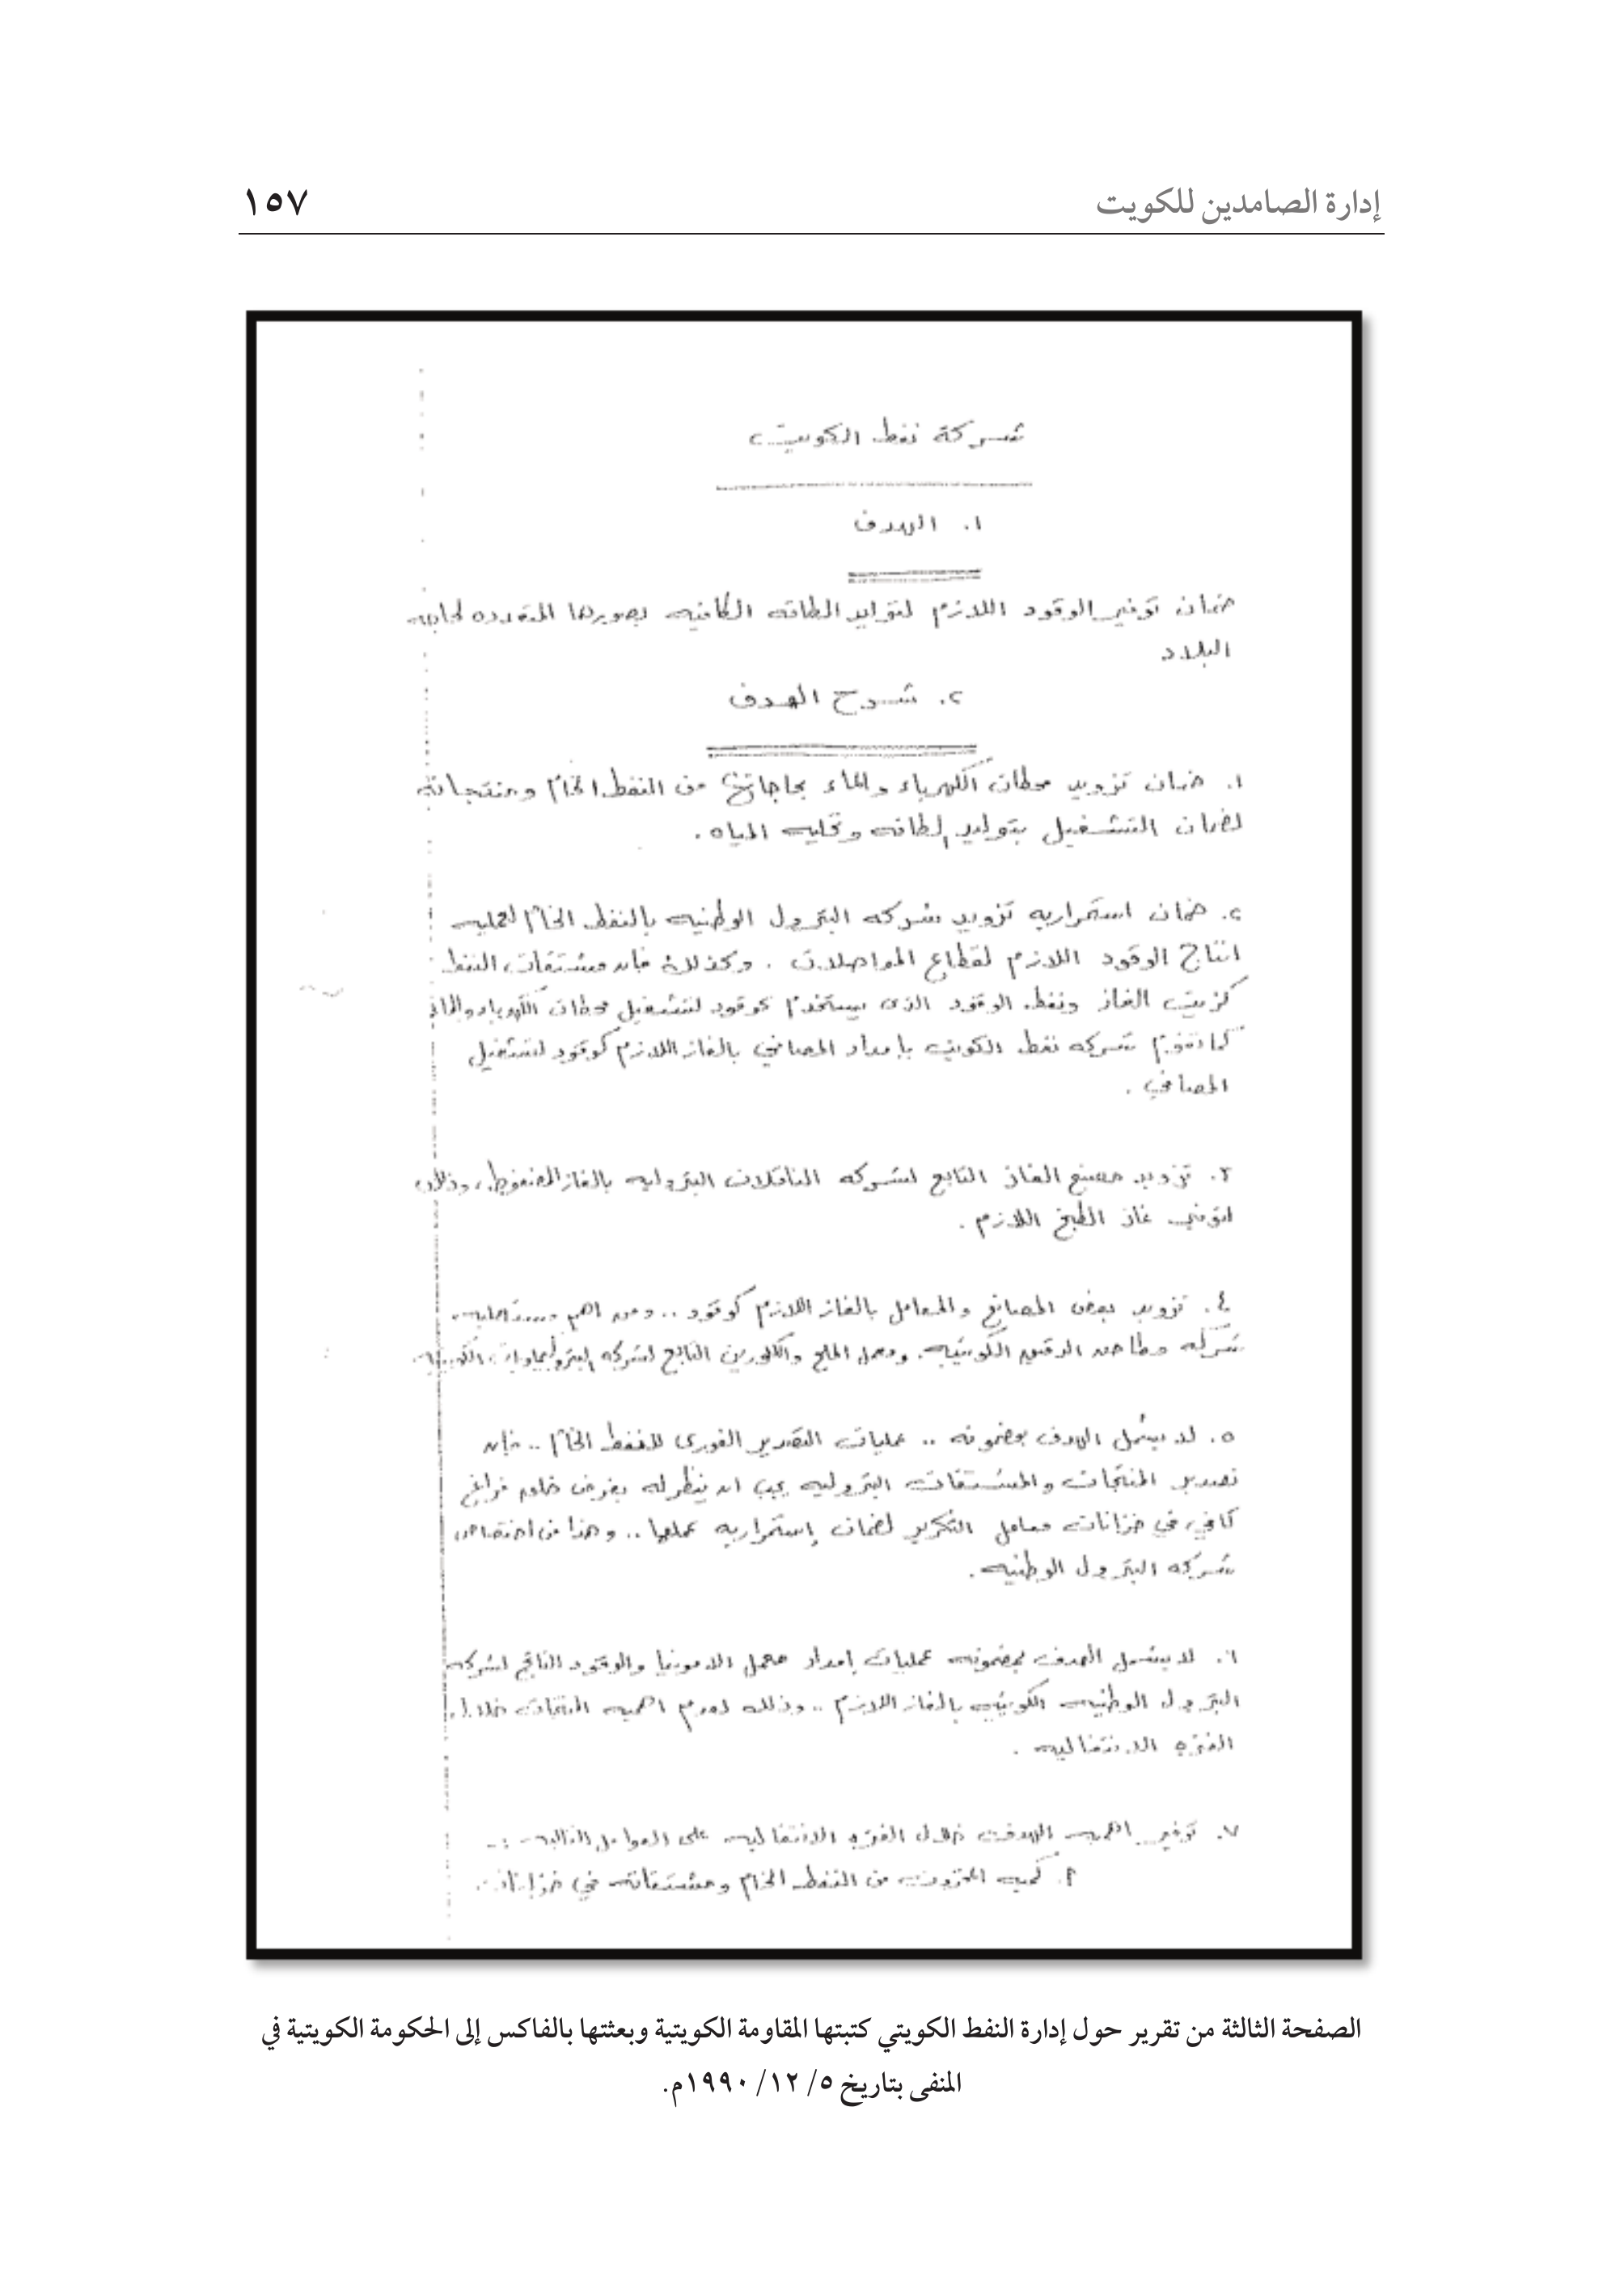 إدارة الصامدين للكويت
١٥٧
شركة نفط الكويت
١. الهدف
ضمان توفير الوقود اللازم لتوليد الطاقه الكافيه بصورها المتعدده لحاجه
البلاد
٢. شرح الهدف
١. ضمان تزويد محطات الكهرباء والماء بحاجاتها من النفط الخام ومنتجاته
لضمان التشغيل بتوليد الطاقه وتحليه المياه.
٢. ضمان استمراريه تزويد شركه البترول الوطنيه بالنفط الخام لعمليه
انتاج الوقود اللازم لقطاع المواصلات . وكذلك فان مشتقات النفط
كزيت الغاز ونفط الوقود الذى يستخدم كوقود لتشغيل محطات الكهرباء والماء
كما تقوم شركه نفط الكويت بإمداد المصافي بالغاز اللازم كوقود لتشغيل
المصافي .
٣. تزويد مصنع الغاز التابع لشركه الناقلات البتروليه بالغاز المضغوط، وذلك
لتوفير غاز الطبخ اللازم .
٤. تزويد بعض المصانع والمعامل بالغاز اللازم كوقود .. ومن اهم
شركه مطاحن الدقيق الكويتيه. ومعمل الملح والكلورين التابع لشركه البتروكيماويات الكويتيه
٥. لا يشمل الهدف بمضمونه .. عمليات التصدير الفورى للنفط الخام .. فإن
تصدير المنتجات والمشتقات البتروليه يجب ان ينظر له بغرض خلق فراغ
كافي، في خزانات معامل التكرير لضمان إستمراريه عملها .. وهذا من اختصاص
شركه البترول الوطنيه.
٦. لا يشمل الهدف بمضمونه عمليات إمداد معمل الامونيا والوقود الناتج لشركه
البترول الوطنيه الكويتيه بالغاز اللازم .. وذلك لعدم اهميه المنتجات خلال
الفتره الانتقاليه .
٧. توفير اهميه الهدف خلال الفتره الانتقاليه على العوامل التاليه :-
أ. كميه المخزون من النفط الخام ومشتقاته في خزانات
الصفحة الثالثة من تقرير حول إدارة النفط الكويتي كتبتها المقاومة الكويتية وبعثتها بالفاكس إلى الحكومة الكويتية في
المنفى بتاريخ ٥/ ١٢/ ١٩٩٠م.